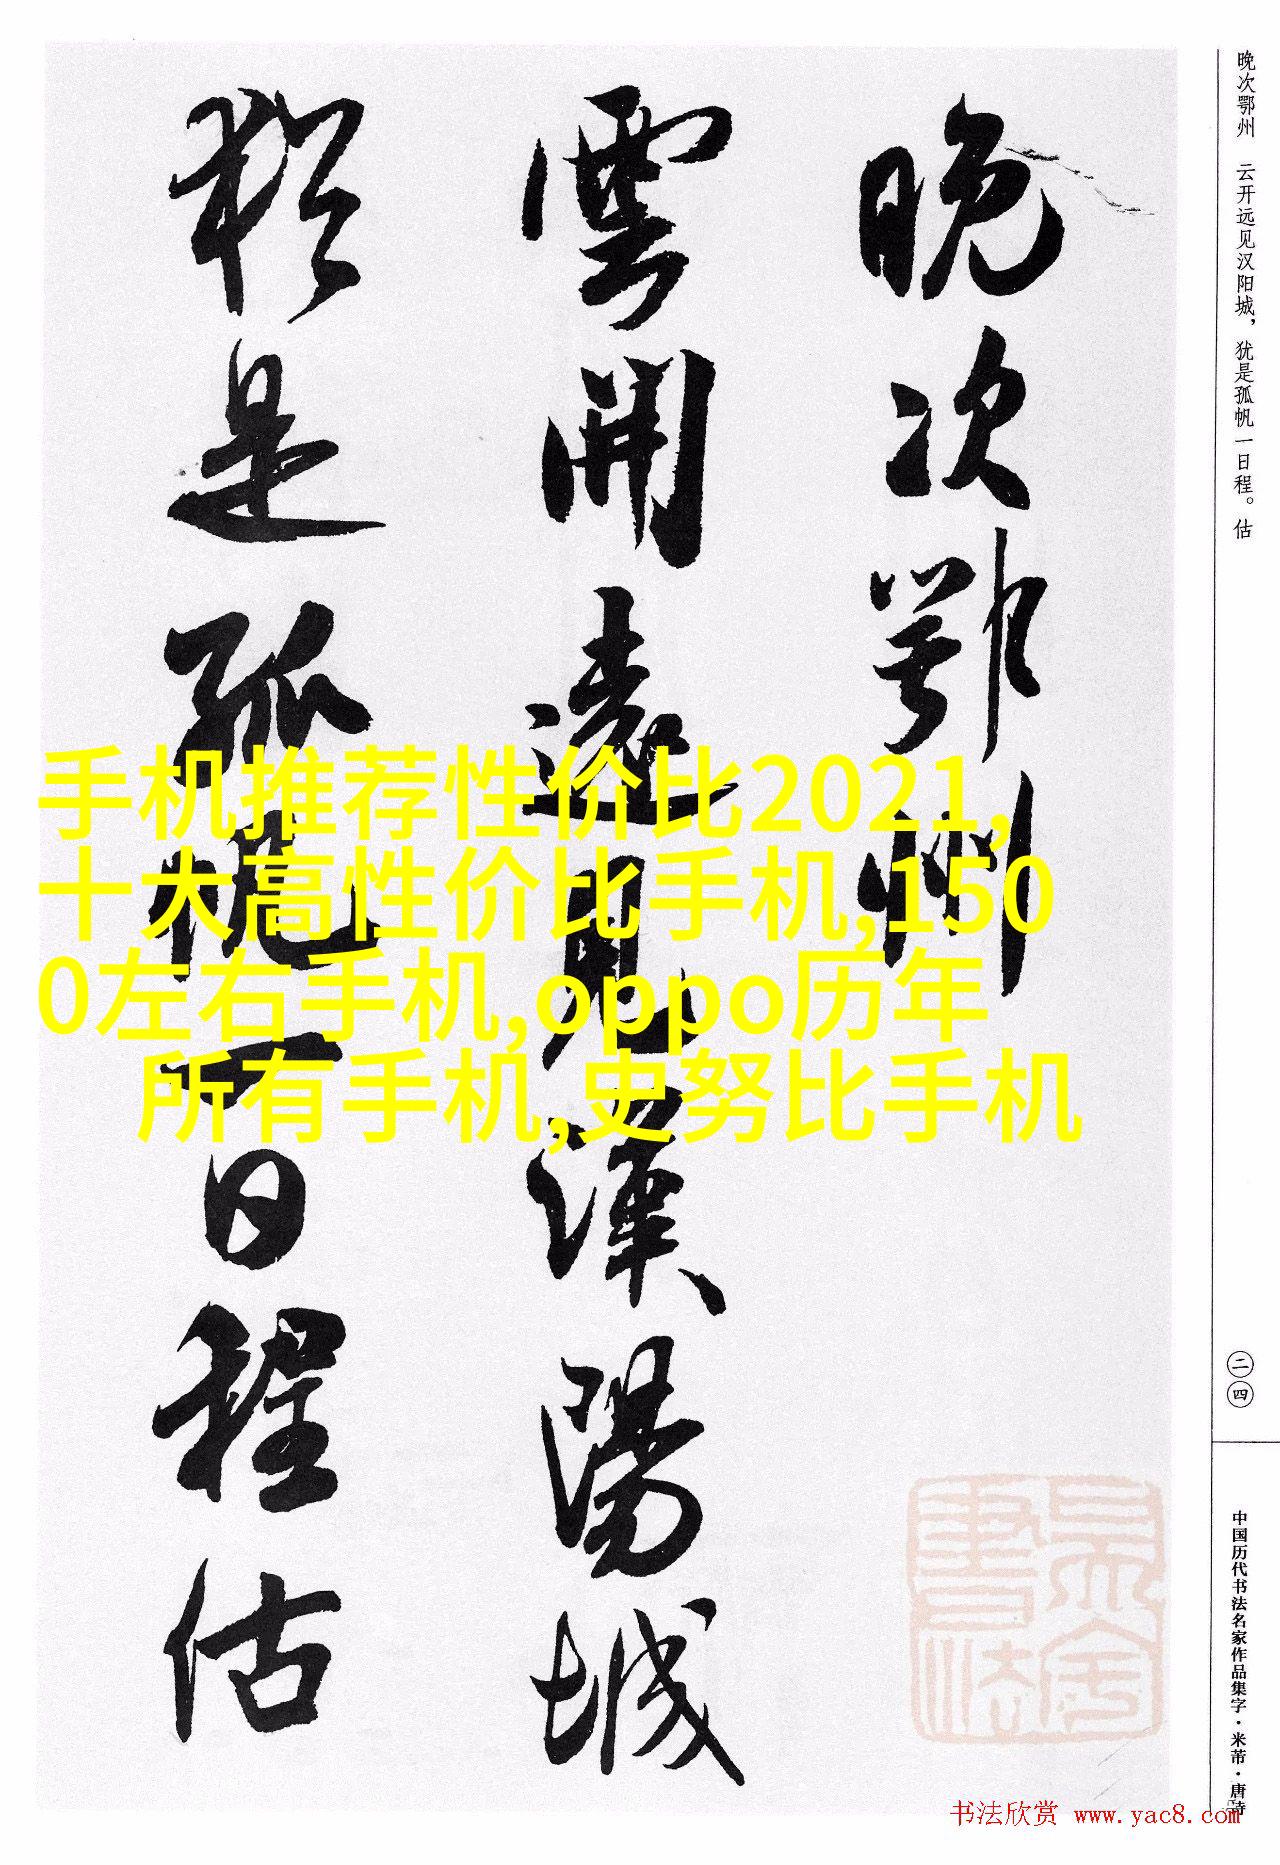 晚次鄂州
雲開遠見漢陽城
猶是孤帆一日程估
手机推荐性价比2021,
十大高性价比手机,150
0左右手机,oppo历年
所有手机,史努比手机
晚次鄂州 云开远见汉阳城，犹是孤帆一日程。估
二四
中国历代书法名家作品集字·米芾·唐诗
书法欣赏 www.yac8.com